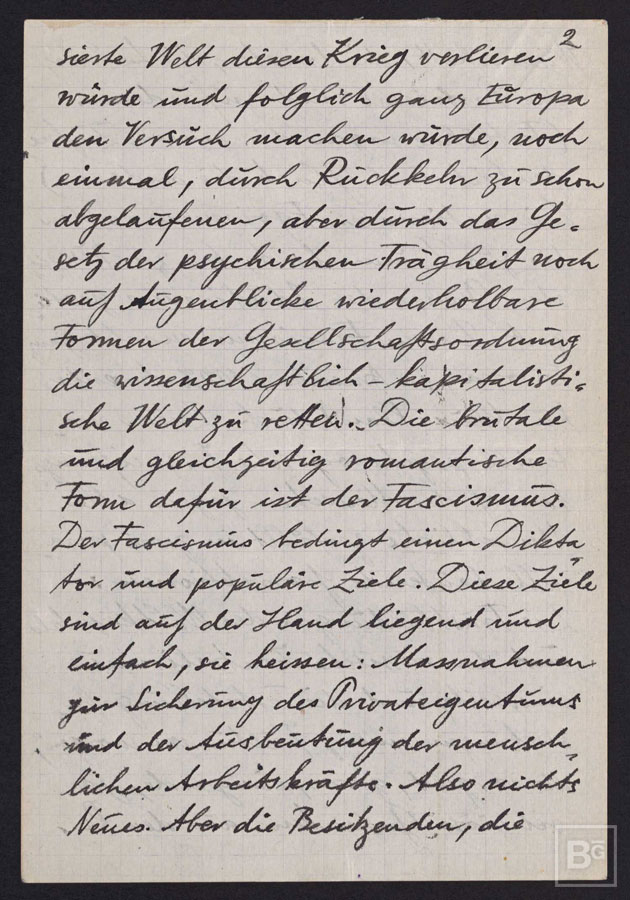 2
sierte Welt diesen Krieg verlieren
würde und folglich ganz Europa
den Versuch machen würde, noch
einmal, durch Rückkehr zu schon
abgelaufenen, aber durch das Ge=
setz der psychischen Trägheit noch
auf Augenblicke wiederholbare
Formen der Gesellschaftsordnung
die wissenschaftlich-kapitalisti=
sche Welt zu retten. Die brutale
und gleichzeitig romantische
Form dafür ist der Fascismus.
Der Fascismus bedingt einen Dikta=
tor und populäre Ziele. Diese Ziele
sind auf der Hand liegend und
einfach, sie heissen: Massnahmen
zur Sicherung des Privateigentums
und der Ausbeutung der mensch=
lichen Arbeitskräfte. Also nichts
Neues. Aber die Besitzenden, die
BG